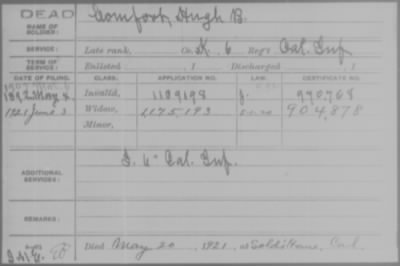 DEAD
NAME OF SOLDIER:
Comfort, Hugh B.
SERVICE:
Late rank, Co. K. 6 Reg't Cal. Inf.
TERM OF SERVICE:
Enlisted , 1 Discharged , 1
DATE OF FILING. CLASS. APPLICATION NO. LAW. CERTIFICATE NO.
1892 May 4. Invalid, 1109198 970,708
1921 June 3 Widow, 1,175,193 904,878
Minor,
ADDITIONAL SERVICES:
6" Cal. Inf.
REMARKS:
Died May 20, 1921, at Sold. Home, Cal.